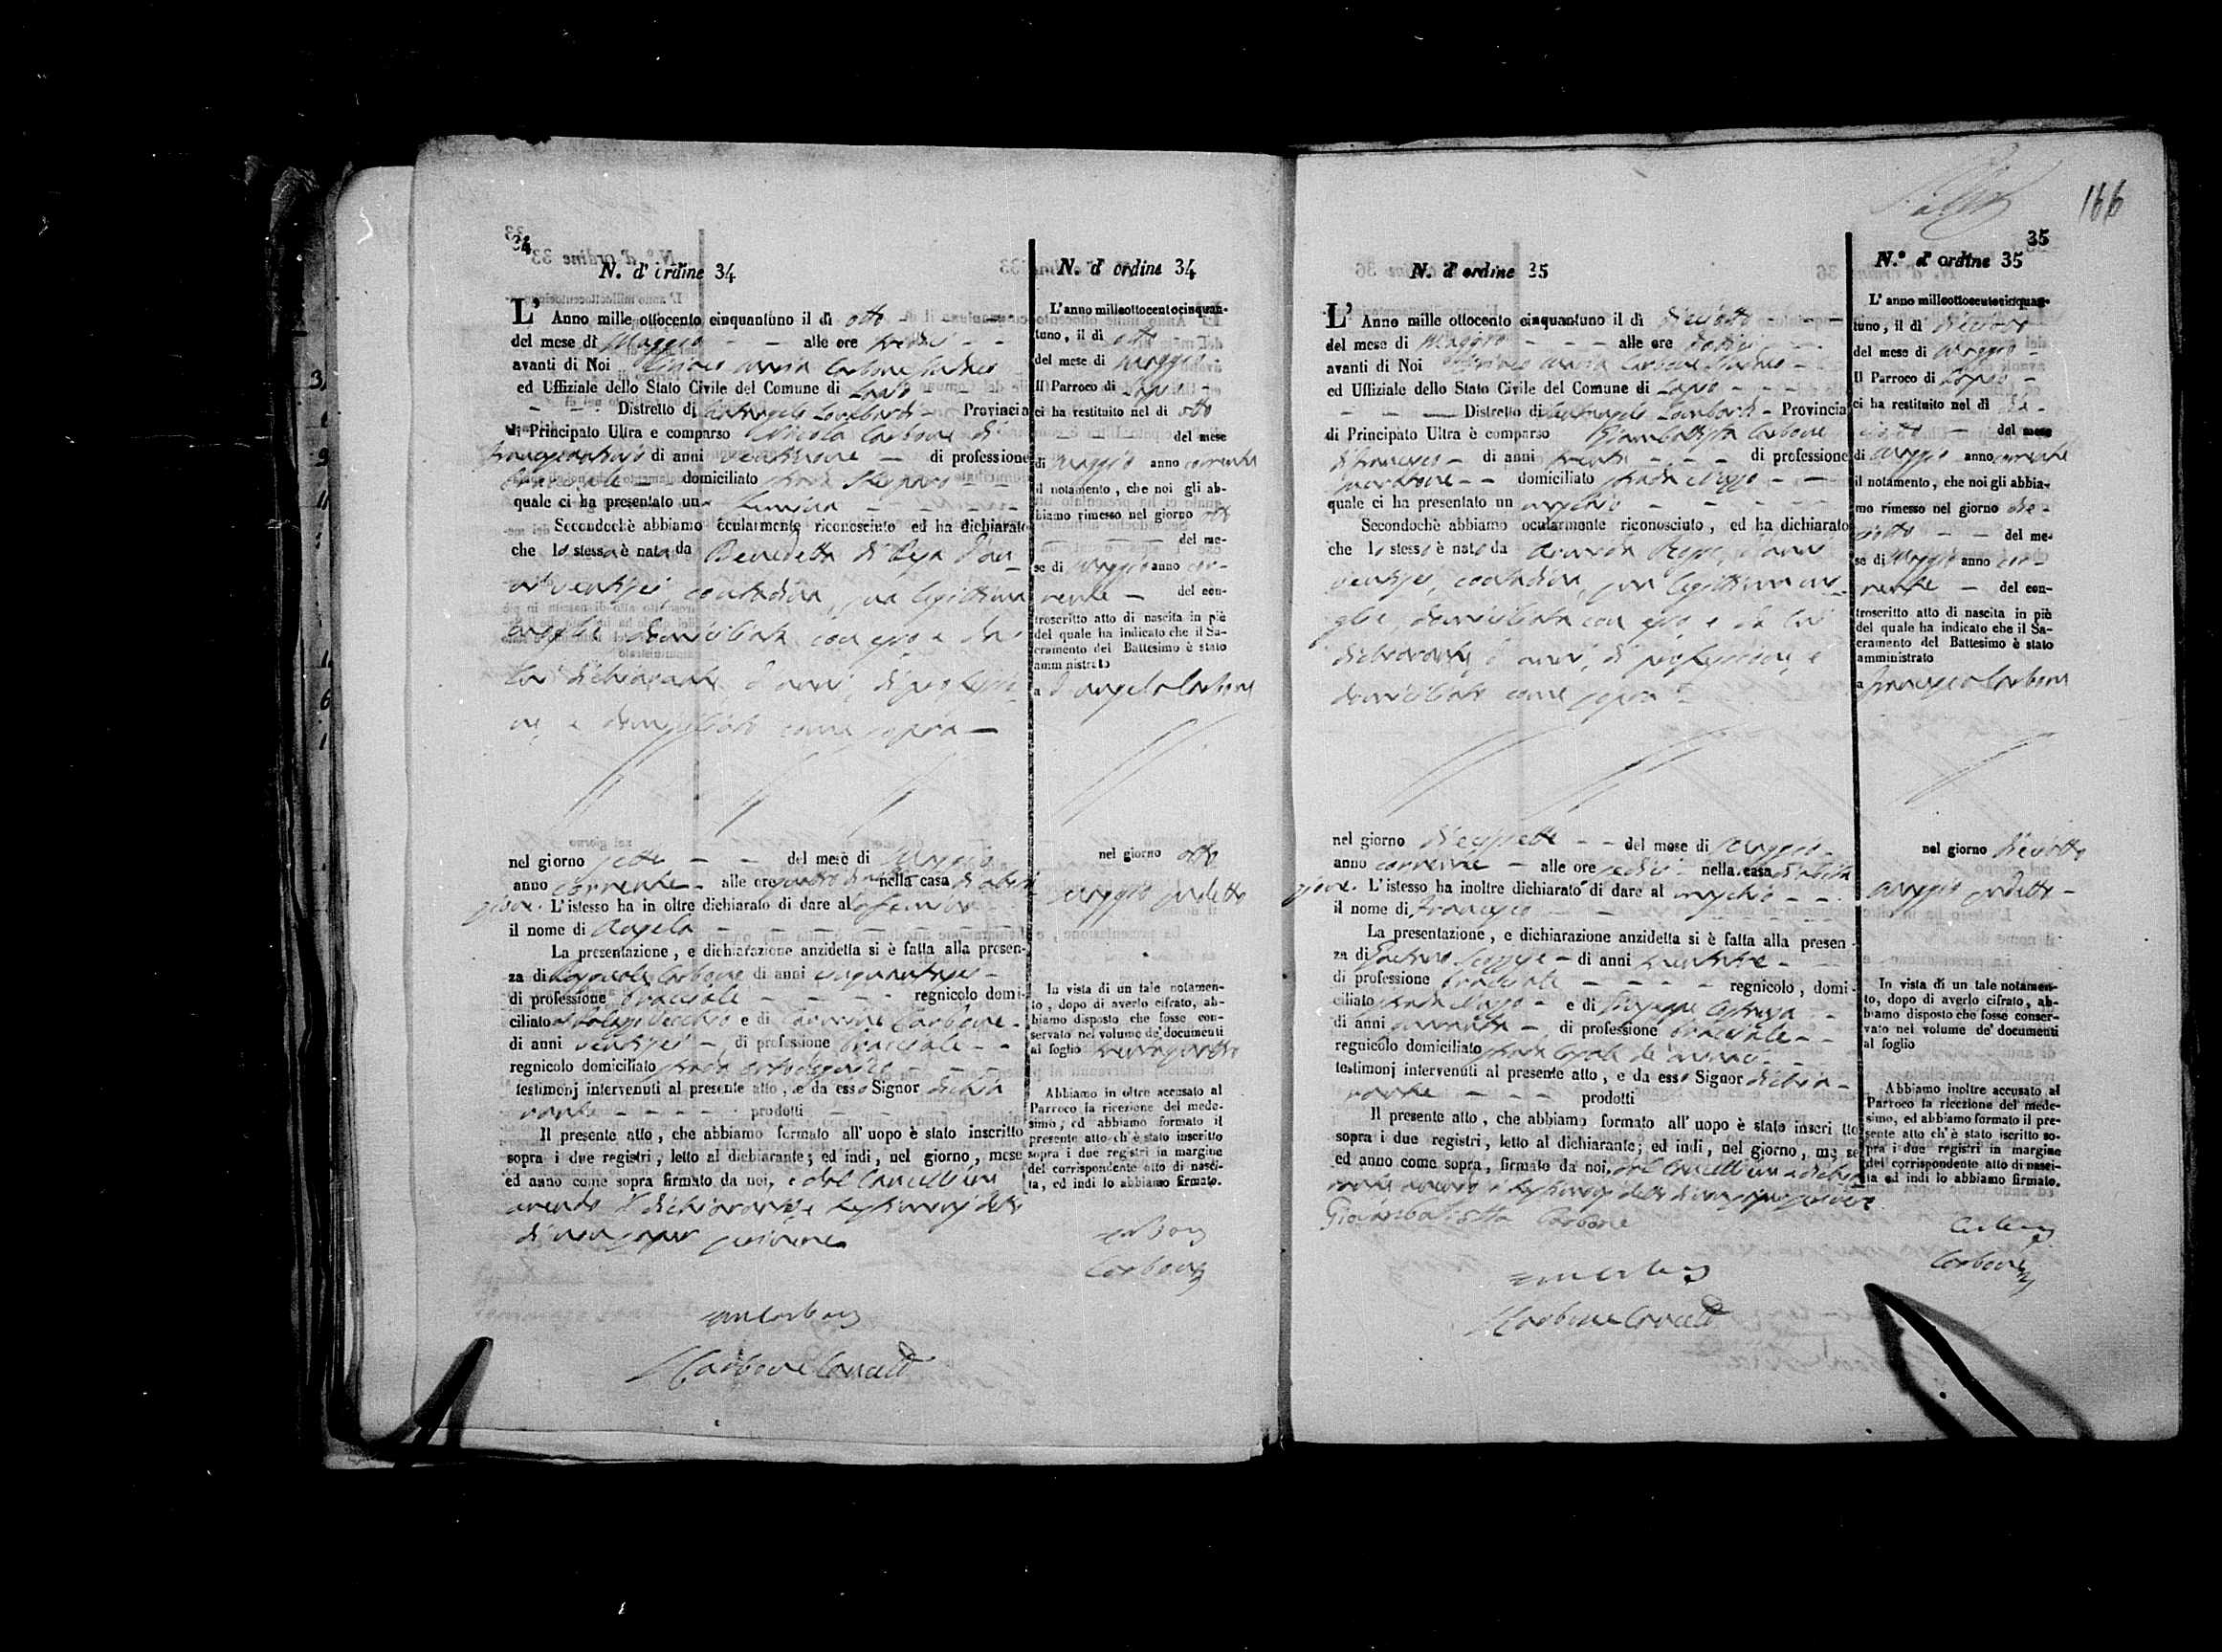 34
N. d' ordine 34
L' Anno mille ottocento cinquantuno il dì otto
del mese di Maggio alle ore
avanti di Noi Maria Carbone Sindaco
ed Uffiziale dello Stato Civile del Comune di
Distretto di Lombardi Provincia
di Principato Ultra e comparso Nicola Carbone di
di anni ventinove di professione
bracciale domiciliato strada
quale ci ha presentato una femina
Secondochè abbiamo ocularmente riconosciuto ed ha dichiarato
che lo stessa è nata da Benedetta di d'an
ni ventisei contadina, sua legittima
moglie domiciliata con esso e da
lui dichiarante d'anni, di professio
ne, e domiciliato come sopra
nel giorno sette del mese di Maggio
anno corrente alle ore nella casa di abita
zione. L'istesso ha in oltre dichiarato di dare al la femina
il nome di Angela
La presentazione, e dichiarazione anzidetta si è fatta alla presen-
za di Carbone di anni
di professione bracciale regnicolo domi-
ciliato Vecchio e di Carmine Carbone
di anni ventisei di professione bracciale
regnicolo domiciliato strada
testimonj intervenuti al presente atto, e da esso Signor dichia
rante prodotti
Il presente atto, che abbiamo formato all' uopo è stato inscritto
sopra i due registri, letto al dichiarante; ed indi, nel giorno, mese
ed anno come sopra firmato da noi, e dal Cancelliere
avendo il dichiarante e testimonj detto
di non saper scrivere
Carbone
Carbone Cancell
N. d' ordine 34
L' anno milleottocentocinquan-
tuno, il dì otto
del mese di Maggio
Il Parroco di
ci ha restituito nel dì otto
del mese
di Maggio anno corrente
il notamento, che noi gli ab-
biamo rimesso nel giorno otto
del me-
se di Maggio anno cor-
rente del con-
troscritto atto di nascita in piè
del quale ha indicato che il Sa-
cramento del Battesimo è stato
amministrato
a Angela Carbone
nel giorno otto
Maggio sudetto
In vista di un tale notamen-
to, dopo di averlo cifrato, ab-
biamo disposto che fosse con-
servato nel volume de' documenti
al foglio
Abbiamo in oltre accusato al
Parroco la ricezione del mede-
simo, ed abbiamo formato il
presente atto ch'è stato inscritto
sopra i due registri in margine
del corrispondente atto di nasci-
ta, ed indi lo abbiamo firmato.
Carbone
Carbone
166
35
N. d' ordine 35
L' Anno mille ottocento cinquantuno il dì dieciotto
del mese di Maggio alle ore
avanti di Noi Maria Carbone Sindaco
ed Uffiziale dello Stato Civile del Comune di
Distretto di Lombardi Provincia
di Principato Ultra è comparso Giambattista Carbone
di Francesco di anni trenta di professione
domiciliato strada
quale ci ha presentato un maschio
Secondochè abbiamo ocularmente riconosciuto, ed ha dichiarato
che lo stesso è nato da d'anni
ventisei, contadina, sua legittima mo
glie, domiciliata con esso e da lui
dichiarante, d'anni, di professione, e
domiciliato come sopra
nel giorno diecisette del mese di Maggio
anno corrente alle ore sedici nella casa di abita
zione. L'istesso ha inoltre dichiarato di dare al maschio
il nome di Francesco
La presentazione, e dichiarazione anzidetta si è fatta alla presen
za di Gaetano di anni trentatre
di professione bracciale regnicolo, domi-
ciliato strada e di Giuseppe
di anni quaranta di professione bracciale
regnicolo domiciliato strada
testimonj intervenuti al presente atto, e da esso Signor dichia-
rante prodotti
Il presente atto, che abbiamo formato all' uopo è stato inscritto
sopra i due registri, letto al dichiarante; ed indi, nel giorno, mese
ed anno come sopra, firmato da noi, dal Cancelliere e dichia
rante avendo i testimonj detto di non saper scrivere
Giovanbatista Carbone
Carbone Cancell
N.° d' ordine 35
L' anno milleottocentocinquan-
tuno, il dì dieciotto
del mese di Maggio
Il Parroco di
ci ha restituito nel dì die-
ciotto del mese
di Maggio anno corrente
il notamento, che noi gli abbia-
mo rimesso nel giorno die-
ciotto del me-
se di Maggio anno cor-
rente del con-
troscritto atto di nascita in piè
del quale ha indicato che il Sa-
cramento del Battesimo è stato
amministrato
a Francesco Carbone
nel giorno dieciotto
Maggio sudetto
In vista di un tale notamen-
to, dopo di averlo cifrato, ab-
biamo disposto che fosse conser-
vato nel volume de' documenti
al foglio
Abbiamo inoltre accusato al
Parroco la ricezione del mede-
simo, ed abbiamo formato il pre-
sente atto ch'è stato iscritto so-
pra i due registri in margine
del corrispondente atto di nasci-
ta ed indi lo abbiamo firmato.
Carbone